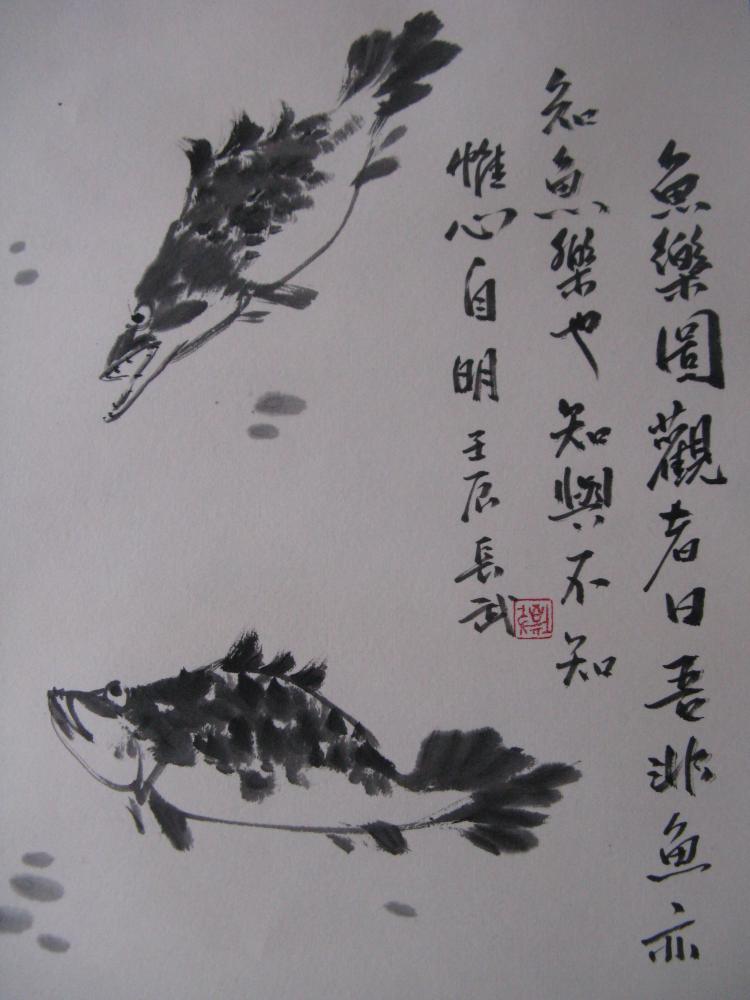 魚樂圖觀者曰吾非魚亦
知魚樂也知與不知
惟心自明壬辰長武